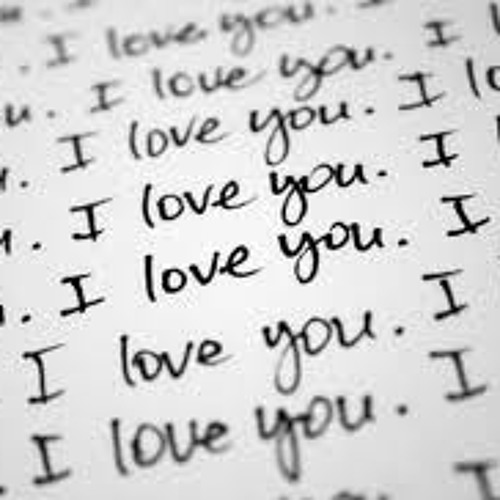 . I love you.
u. I love you. I
. I love you. I lo
. I love you. I
. I love you. I
I love you. I
I love you. I
I